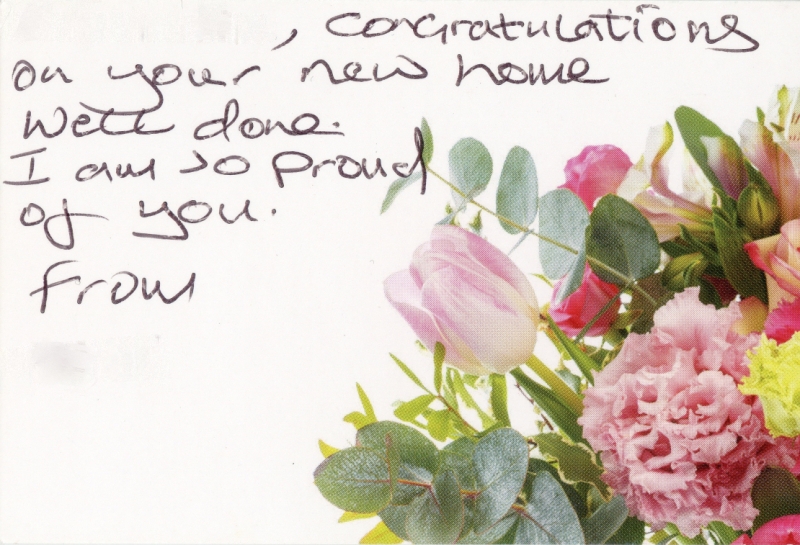 , Congratulations
on your new home
Well done.
I am so proud
of you.
From